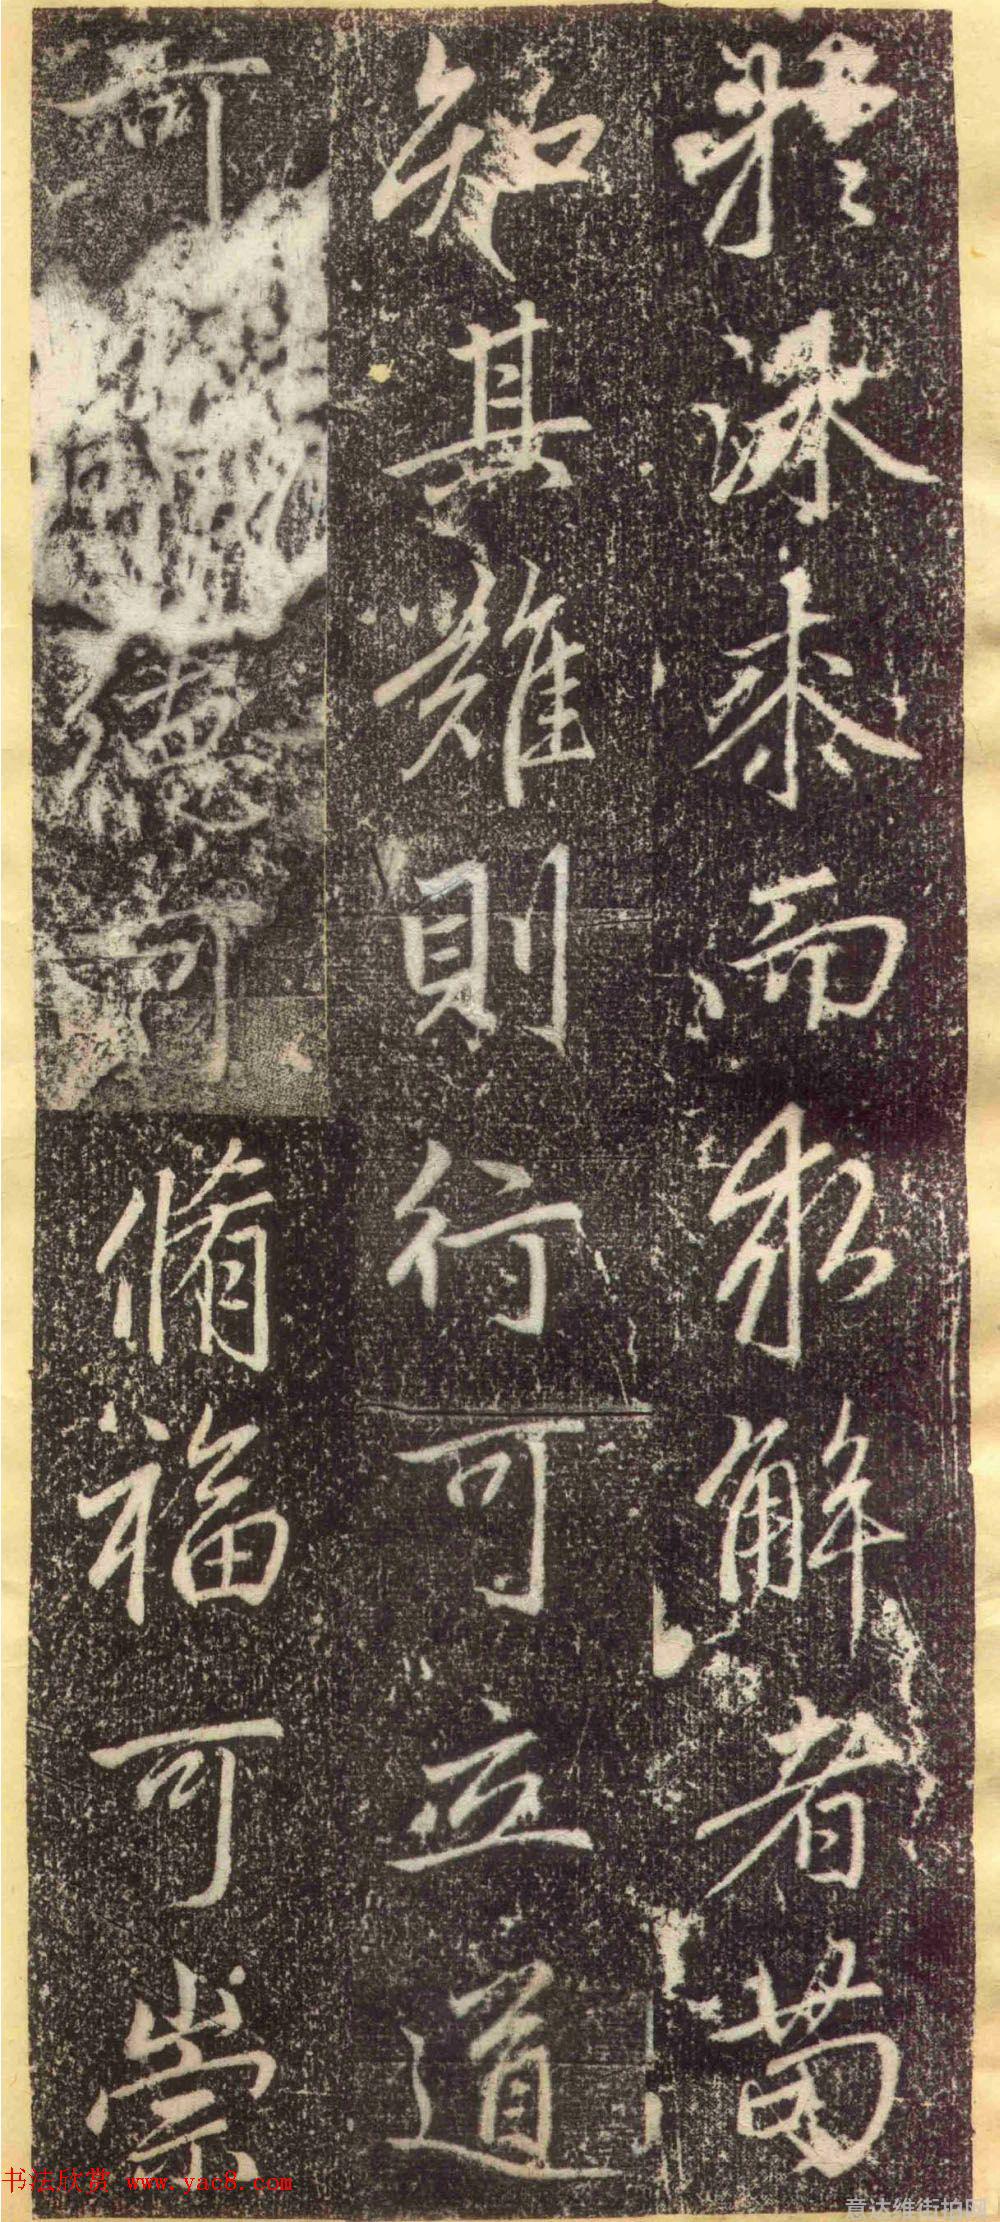 於深而求解者苟
知其難則行可立道
可德可脩福可崇
书法欣赏 www.yac8.com
意达维街拍网